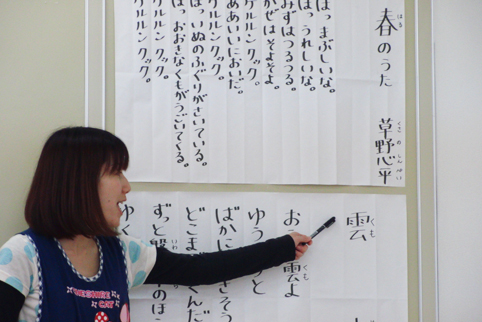 春のうた
はる
草野心平
くさの しんぺい
ほっ まぶしいな。
ほっ うれしいな。
みずはつるつる。
かぜはそよそよ。
ケルルン クック。
ああいいにおいだ。
ケルルン クック。
ほっ いぬのふぐりがさいている。
ほっ おおきなくもがうごいてくる。
ケルルン クック。
ケルルン クック。
雲
くも
お 雲よ
くも
ゆう と
ばかに きそう
どこま くんだ
ずっと磐 のほ
いわ
ゆく
CHESHIRE
CAT